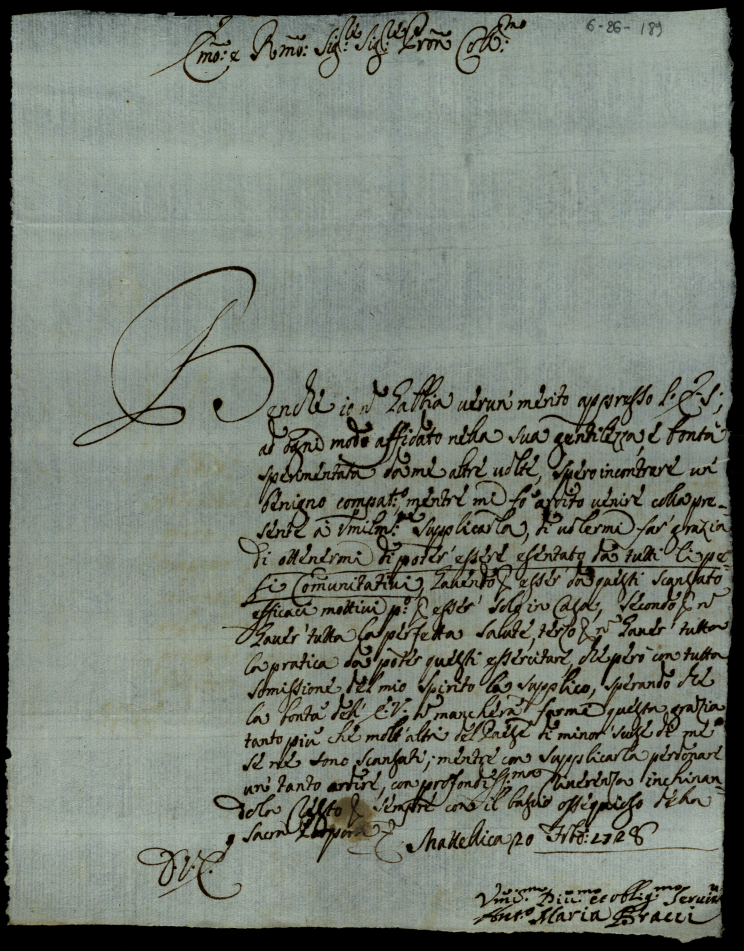 6-26-189
Emo: e Rmo: Sig:re Sig:re Pron Coll:mo
Benche io nō habbia verun merito appresso l'E: S:,
ad ogni modo affidato nella sua gentilezza, e bontà
sperimentata da me altre volte, spero incontrare un
benigno compat:to, mentre mi fò ardito venire colla pre-
sente à Umilm:te supplicarla, di volermi far grazia
di ottenermi di poter essere esentato da tutti li pe-
si Comunitativi, havendo p esser da questi scansato
efficaci mottivi p:o p esser solo in Casa, secondo p nō
haver tutta la perfetta salute, terzo p nō haver tutta
la pratica da poter questi essercitare, che però con tutta
somissione del mio spirito la supplico, sperando che
la bontà dell' E V. nō mancherà farme questa grazia
tanto più che molt'altri del Paese di minor scuse di me
se ne sono scansati; mentre con supplicarla perdonare
un tanto ardire, con profondissima riverenza inchinan-
dola resto p sempre con il bacio ossequioso della
Sacra Porpora
Mattelica 20 Febb: 1728
D: V: E:
Umil:mo Div:mo et oblig:mo Servit:
Ant:o Maria Bracci